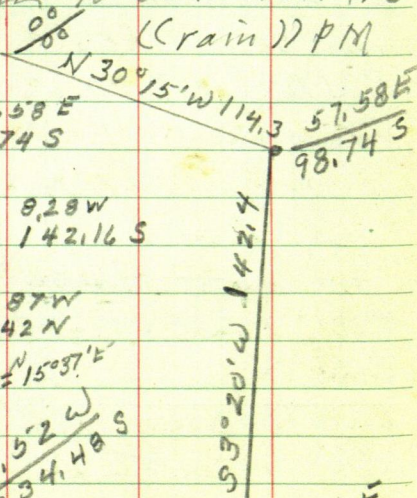 00
00
((rain)) PM
N 30°15'W 114.3
57.58 E
98.74 S
.58 E
74 S
8.28 W
142.16 S
S 3°20'W 142.4
87 W
42 N
= N 15°37'E
.52 W
34.48 S